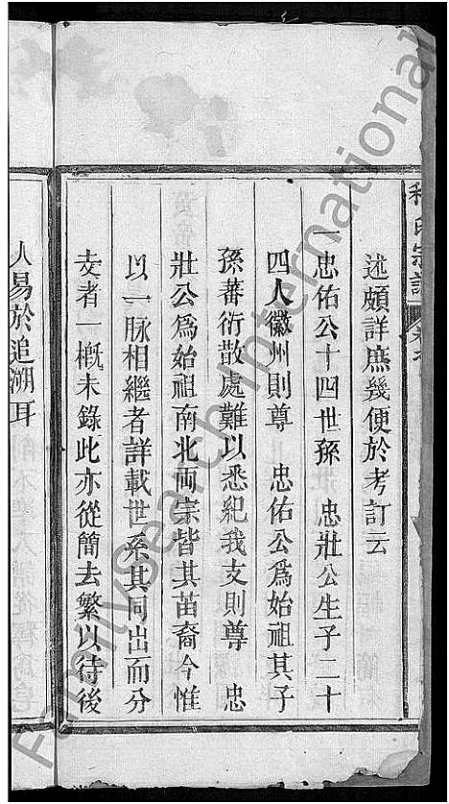 氏宗譜
述頗詳庶幾便於考訂云
一忠佑公十四世孫 忠壯公生子二十
四人徽州則尊 忠佑公爲始祖其子
孫蕃衍散處難以悉紀我支則尊 忠
壯公爲始祖南北両宗皆其苗裔今惟
以一脉相繼者詳載世系其同出而分
支者一槪未錄此亦從簡去繁以待後
人易於追溯耳
FamilySearch International